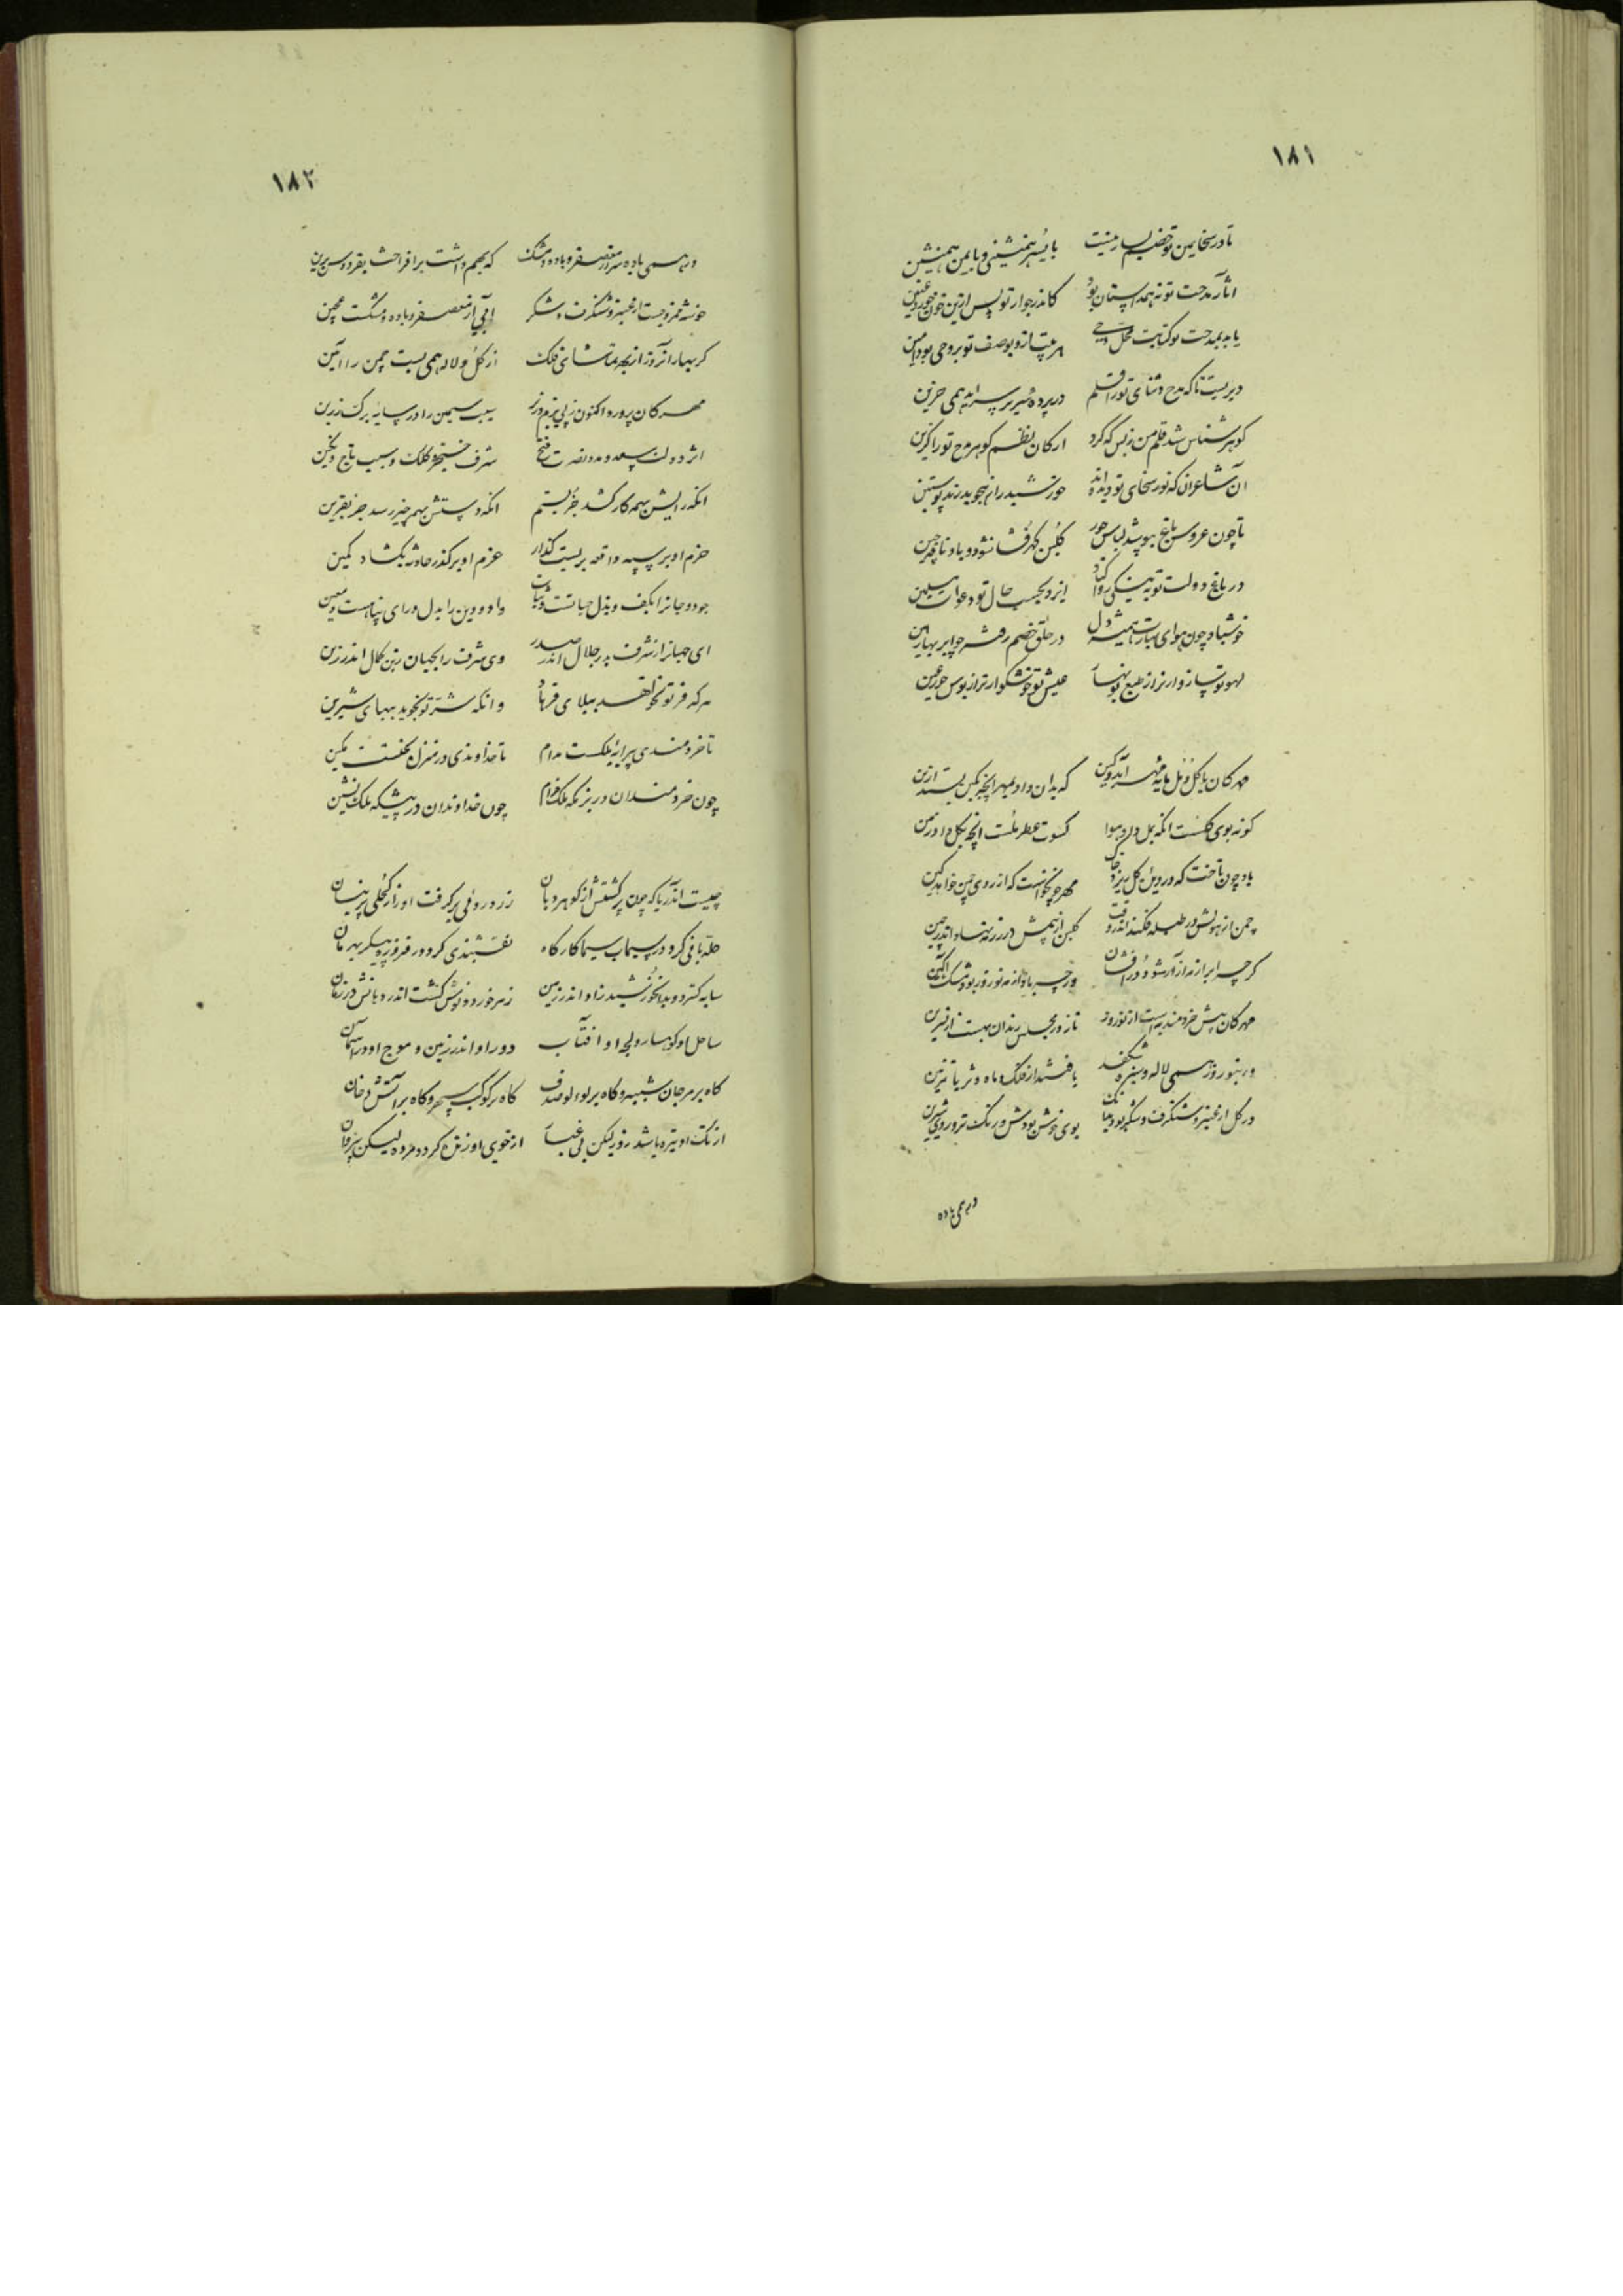 ۱۸۱
تا در سخا یمین تو خصم یسار نیست با یُسر همنشینی و با یمن همنشین
اثار مدحت تو نه همداستان بود کاندر جوار تو پس ازین خون خورد
یابد بمدحت تو کتابت محل وحی هر بیت از و بوصف تو بر وحی بود امین
دیریست تا که مدح و ثنای تو را قلم در پرده صریر سراید همی حزین
گوهر شناس شد قلم من ز بس که کرد ارکان نظم گوهر مدح تو را گزین
آن شاعران که نور سخای تو دیده اند خورشید را بهجو بدرند پوستین
تا چون عروس باغ بپوشد لباس حور گلبن گهرفشان شود و باد
در باغ دولت تو به نیکی روا کناد ایزد بحسب حال تو دعوات مسلمین
خوش باد چون هوای بهارت همیشه دل در حلق خصم چو ابر بهار
لهو تو سازوارتر از طبع نو بهار عیش تو خوشگوارتر از بوس حور عین
مهرکان با گل و مل مایه مهر آمد و کین که بدان داد بمهر انچه بکین بستد ازین
گونه بوی گلست انکه بمل داد هوا کسوت عطر ملست انچه بگل داد زمین
باد چون تاخت که در ویل گل ریزد خاک مهر چو نخواست که از روی چمن خواهد کین
چمن از هولش در طبله فکند گلبن از بیمش در زر نهاد
گرچه ابر از مه آزار شود درفشان ورچه باد از مه نوروز بود مشک آگین
مهرکان پیش خردمند به است از نوروز نار در مجلس رندان بهست از نسرین
ور بنوروز همی لاله و سبزه شکفد یا فشند از فلک و ماه و ثریا تزیین
در گل از عنبر و شنگرف و شکر بود بوی خوش بودش و رنگ تر و روی شیرین
در همی باده
۱۸۲
در همی باده سر از معصفر و باده و مشک که بهم داشت برافراخت بفردوس برین
خوشه خمر و چیست از عنبر و شنگرف و شکر آبی از معصفر و باده و مشکست عجین
گر بهار آنروز از بهر تماشای فلک از گل و لاله همی بست چمن را آئین
مهرکان پرورد اکنون ز پی بزم وزیر سیب سیمین را در سایه برگ زرین
اثر دولت سعد و مدد نصرت فتح شرف خنجر و کلک و سبب تاج و نگین
انکه رایش همه کار کشد جز بستم انکه دستش بهمه چیز رسد جز بقرین
حزم او بر سپه واقعه بربست گذار عزم او بر گذر حادثه بگشاد کمین
جود و جانرا بکف و بذل حیاتست و ثبات داد و دین را بدل و رای پناهست و معین
ای جهانرا ز شرف بدر جلال اندر صدر وی شرف را بجهان رتبت کمال اندر زین
هر که فر تو نخواهد ببلای فرهاد و انکه شر تو بجوید ببهای شیرین
تا خردمندی پیرایه ملکست مدام تا خداوندی در منزل تختست مکین
چون خردمندان در بزمگه ملک خرام چون خداوندان در پیشگه ملک نشین
چیست اندر یا که چون پر گشتش از گوهر دهان زرد روئی بر گرفت او را ز کحلی پرنیان
حله بافی کرد در سیماب سیما کارگاه نقشبندی کرد در فیروزه پیکر بهرمان
سایه گسترد و بدان خورشید زاد اندر زمین زهر خورد و نوش گشت اندر دهانش در زمان
ساحل او کوهسار و لجه او آفتاب دور او اندر زمین و موج او در آسمان
گاه بر مرجان شبه و گاه بر لولو صدف گاه بر کوکب سپهر و گاه بر آتش دخان
از تک او تیره باشد روز لیکن بی غبار از خوی او زنده گردد مرده لیکن بی روان